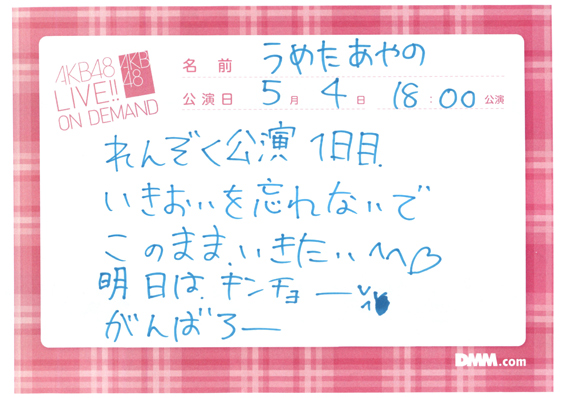 AKB48
LIVE!!
ON DEMAND
AKB
48
名前 うめたあやの
公演日 5月4日 18:00公演
れんぞく公演 1日目.
いきおいを忘れないで
このまま、いきたい^^♡
明日は、キンチョー
がんばろー
DMM.com